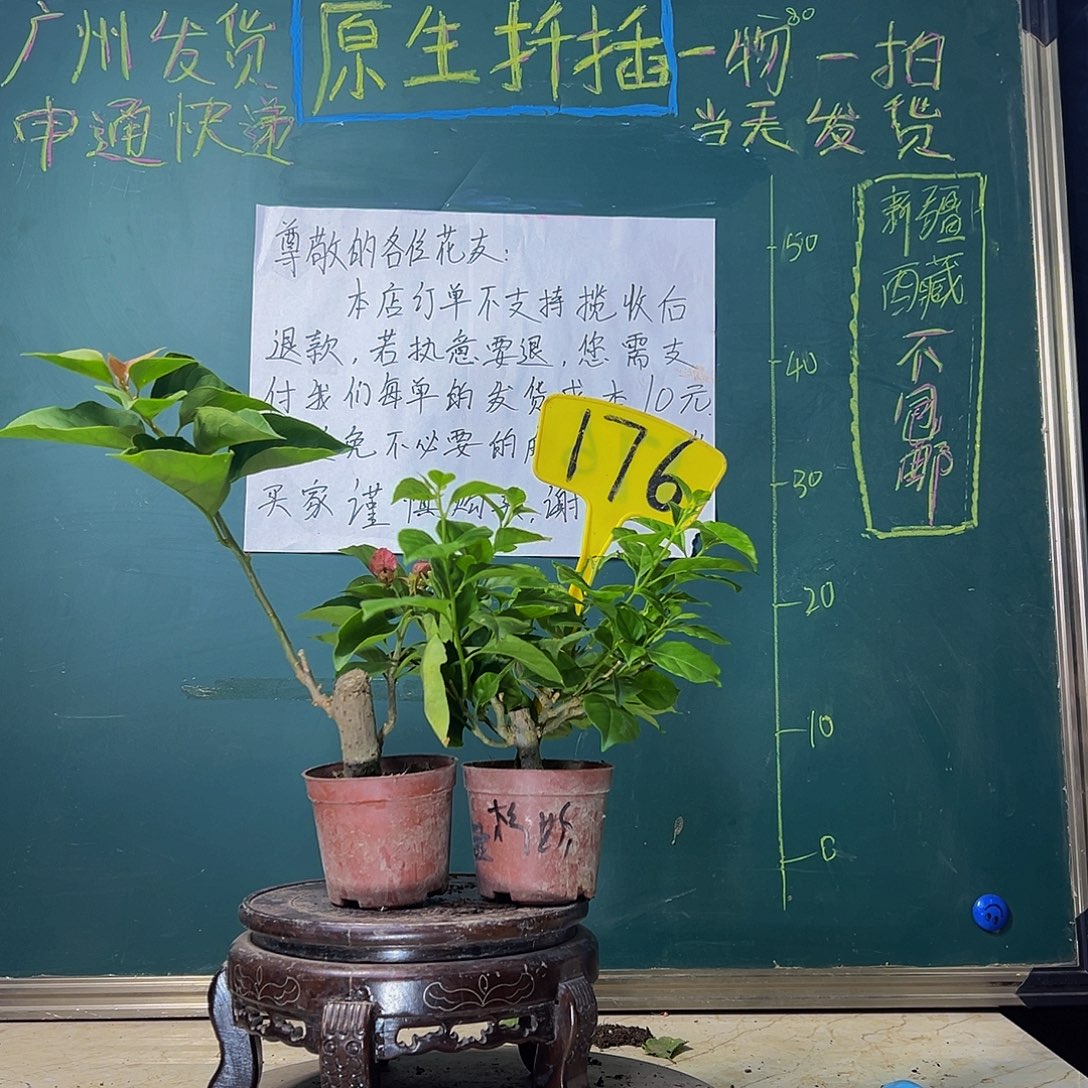 广州发货
原生扦插
一物一拍
申通快递
当天发货
尊敬的各位花友:
本店订单不支持揽收后
退款,若执意要退,您需支
付我们每单的发货成本10元
免不必要的
买家谨慎购买,谢
176
新疆
西藏
不
包
邮
50
40
30
20
10
0